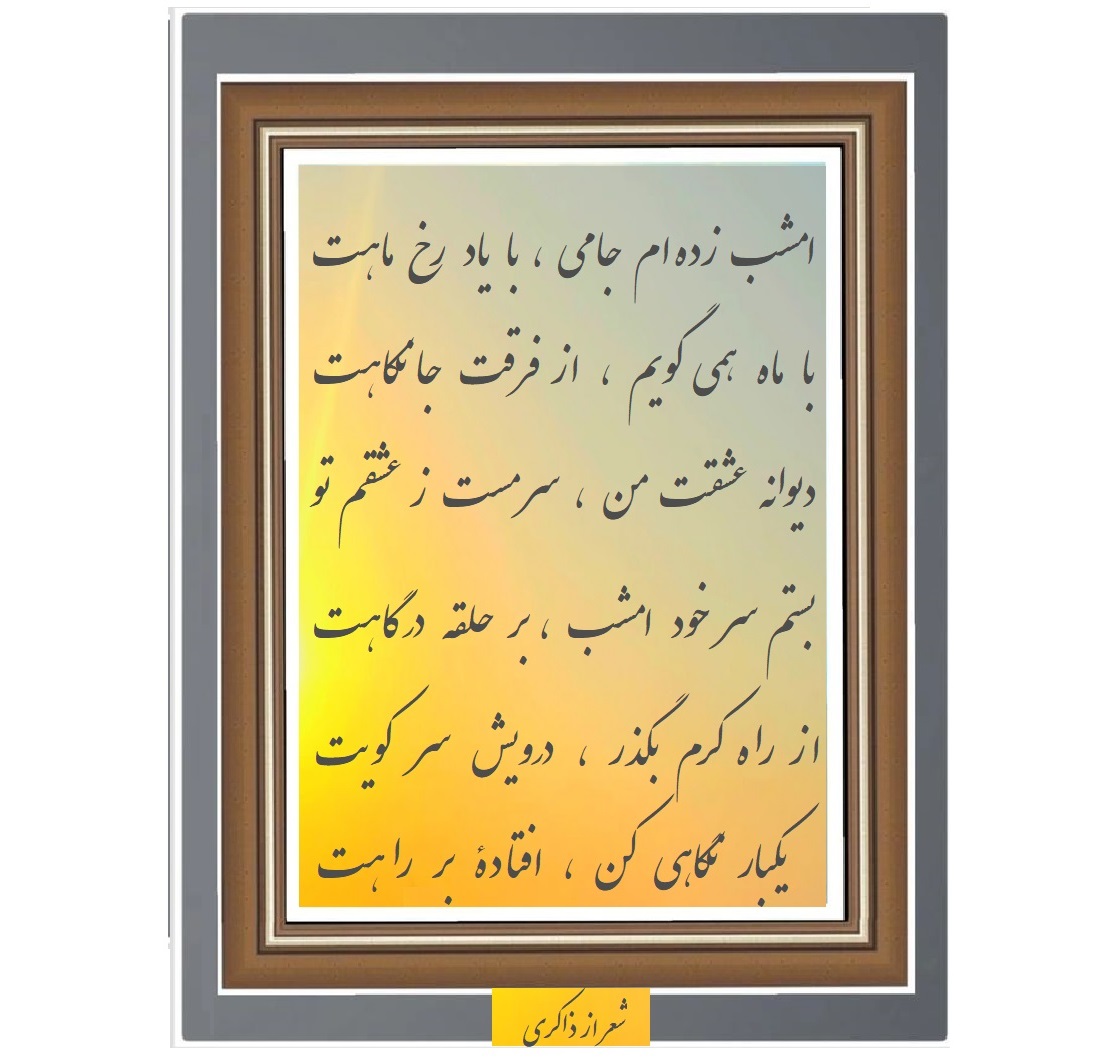 امشب زده ام جامی ، با یاد رخ ماهت
با ماه همی گویم ، از فرقت جانکاهت
دیوانه عشقت من ، سرمست ز عشقم تو
بستم سر خود امشب ، بر حلقه درگاهت
از راه کرم بگذر ، درویش سر کویت
یکبار نگاهی کن ، افتادۀ بر راهت
شعر از ذاکری